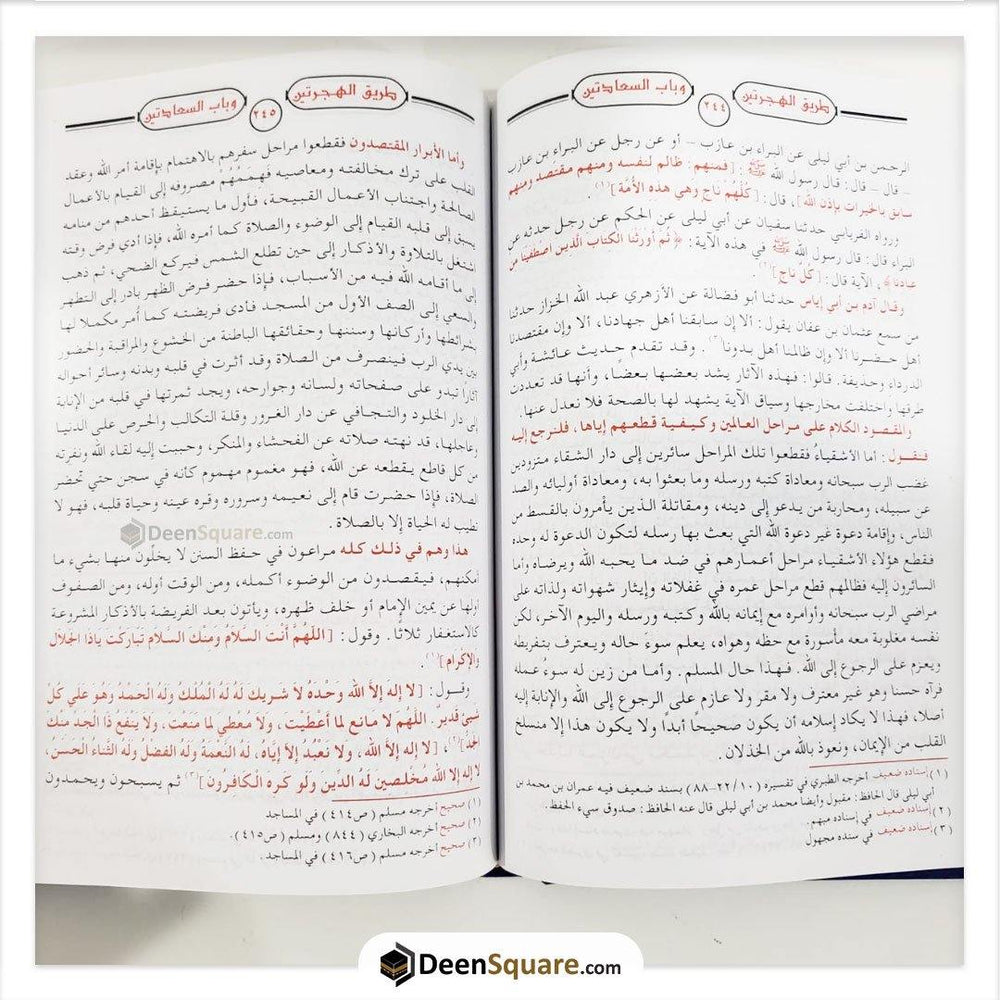 طريق الهجرتين
٢٤٤
وباب السعادتين
الرحمن بن أبي ليلى عن البراء بن عازب - أو عن رجل عن البراء بن عازب
- قال - قال: قال رسول الله ﷺ : [فمنهم: ظالم لنفسه ومنهم مقتصد ومنهم
سابق بالخيرات بإذن الله] ، قال: [كلُّهُمْ نَاجٍ وهي هذِهِ الأُمَّة](١) .
ورواه الفريابي حدثنا سفيان عن أبي ليلى عن الحكم عن رجل حدثه عن
البراء قال: قال رسول الله ﷺ في هذه الآية: ﴿ ثُم أورثنا الكتاب الَّذِين اصْطفينا من
عبادنا﴾، الآية قال: [كُلٌّ ناجٍ](٢) .
وقال آدم بن أبي إياس حدثنا أبو فضالة عن الأزهري عبد الله الخزاز حدثنا
من سمع عثمان بن عفان يقول: ألا إن سابقنا أهل جهادنا، ألا وإن مقتصدنا
أهل حضرنا ألا وإن ظالمنا أهل بدونا(٣) . وقد تقدم حديث عائشة وأبي
الدرداء وحذيفة. قالوا: فهذه الآثار يشد بعضها بعضا، وأنها قد تعددت
طرقها واختلفت مخارجها وسياق الآية يشهد لها بالصحة فلا نعدل عنها.
والمقصود الكلام على مراحل العالمين وكيفية قطعهم إياها، فلنرجع إليه
فنقول : أما الأشقياءُ فقطعوا تلك المراحل سائرين إلى دار الشقاء متزودين
غضب الرب سبحانه ومعاداة كتبه ورسله وما بعثوا به، ومعاداة أوليائه والصد
عن سبيله، ومحاربة من يدعو إلى دينه، ومقاتلة الذين يأمرون بالقسط من
الناس، وإقامة دعوة غير دعوة الله التي بعث بها رسله لتكون الدعوة له وحده
فقطع هؤلاء الأشقياء مراحل أعمارهم في ضد ما يحبه الله ويرضاه وأما
السائرون إليه فظالمهم قطع مراحل عمره في غفلاته وإيثار شهواته ولذاته على
مراضي الرب سبحانه وأوامره مع إيمانه بالله وكتبه ورسله واليوم الآخر، لكن
نفسه مغلوبة معه مأسورة مع حظه وهواه، يعلم سوءَ حاله ويعترف بتفريطه
ويعزم على الرجوع إلى الله. فهذا حال المسلم. وأما من زين له سوءُ عمله
فرآه حسنا وهو غير معترف ولا مقر ولا عازم على الرجوع إلى الله والإنابة إليه
أصلا، فهذا لا يكاد إسلامه أن يكون صحيحًا أبداً ولا يكون هذا إلا منسلخ
القلب من الإيمان، ونعوذ بالله من الخذلان.
(١) إسناده ضعيف أخرجه الطبري في تفسيره (١٠/٢٢-٨٨) بسند ضعيف فيه عمران بن محمد بن
أبي ليلى قال الحافظ: مقبول وأيضا محمد بن أبي ليلى قال عنه الحافظ: صدوق سيء الحفظ.
(٢) إسناده ضعيف في إسناده مبهم.
(٣) إسناده ضعيف في سنده مجهول
طريق الهجرتين
٢٤٥
وباب السعادتين
وأما الأبرار المقتصدون فقطعوا مراحل سفرهم بالاهتمام بإقامة أمر الله وعقد
القلب على ترك مخالفته ومعاصيه فَهِمَمُهُمْ مصروفه إلى القيام بالأعمال
الصالحة واجتناب الأعمال القبيحة، فأول ما يستيقظ أحدهم من منامه
يسبق إلى قلبه القيام إلى الوضوء والصلاة كما أمره الله، فإذا أدي فرض وقته
اشتغل بالتلاوة والأذكار إلى حين تطلع الشمس فيركع الضحي، ثم ذهب
إلى ما أقامه الله فيه من الأسباب، فإذا حضر فرض الظهر بادر إلى التطهر
والسعي إلى الصف الأول من المسجد فأدى فريضته كما أُمر مكملا لها
بشرائطها وأركانها وسننها وحقائقها الباطنة من الخشوع والمراقبة والحضور
بين يدي الرب فينصرف من الصلاة وقد أثرت في قلبه وبدنه وسائر أحواله
آثارا تبدو على صفحاته ولسانه وجوارحه، ويجد ثمرتها في قلبه من الإنابة
إلى دار الخلود والتجافي عن دار الغرور وقلة التكالب والحرص على الدنيا
وعاجلها، قد نهته صلاته عن الفحشاء والمنكر، وحببت إليه لقاء الله ونفرته
من كل قاطع يقطعه عن الله، فهو مغموم مهموم كأنه في سجن حتي تحضر
الصلاة، فإذا حضرت قام إلى نعيمه وسروره وقره عينه وحياة قلبه، فهو لا
تطيب له الحياة إلا بالصلاة .
هذا وهم في ذلك كله مراعون في حفظ السنن لا يخلُّون منها بشيء ما
أمكنهم، فيقصدون من الوضوء أكمله، ومن الوقت أوله، ومن الصفوف
أولها عن يمين الإمام أو خلف ظهره، ويأتون بعد الفريضة بالأذكار المشروعة
كالاستغفار ثلاثًا. وقول: [اللَّهُمَّ أَنْت السَّلاَمُ وَمِنْكَ السلامِ تباركت ياذا الجلالِ
والإِكْرَام](١) .
وقول: [لا إِلهَ إِلاَّ اللهِ وَحْدَهُ لا شَرِيك لَهُ لَهُ الْمُلْكُ وَلَهُ الْحَمْدُ وهو علي كُلِّ
شيئٍ قديرٌ . اللَّهُم لا مانعَ لما أعْطَيْت، ولا مُعْطي لما منَعْت، ولا يَنْفَعُ ذا الْجد مِنْكَ
الجَدُّ](٢)، [لا إِله إِلاَّ الله، ولا نَعْبُدُ إِلاَّ إِيَّاهُ، لَهُ النِّعْمَةُ وَلَهُ الْفضْلُ ولَهُ الثَّناءُ الْحَسَنُ،
لا إِله إِلا اللهُ مُخْلِصِين لَهُ الدِّينَ وَلَو كَرِه الْكَافِرُون](٣) ثم يسبحون ويحمدون
(١) صحيح أخرجه مسلم (ص٤١٤) في المساجد
(٢) صحيح أخرجه البخاري (٨٤٤) ومسلم (ص٤١٥).
(٣) صحيح أخرجه مسلم (ص٤١٦) في المساجد .
DeenSquare.com
DeenSquare.com